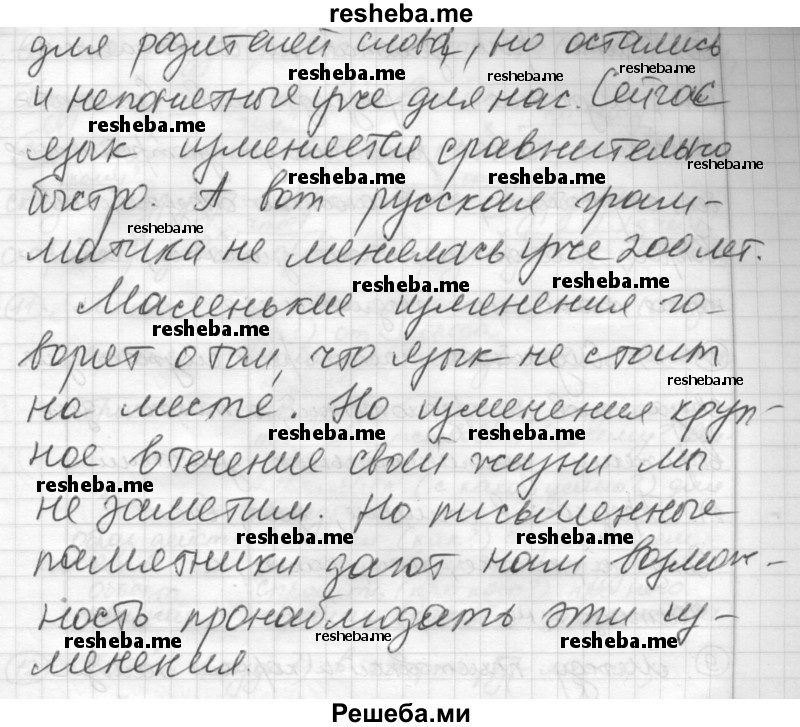 resheba.me
для родителей слова, но остались
resheba.me resheba.me resheba.me
и непонятные уже для нас. Сейчас
resheba.me
язык изменяется сравнительно
resheba.me resheba.me resheba.me
быстро. А вот русская грам-
resheba.me
матика не менялась уже 200 лет.
resheba.me resheba.me
Маленькие изменения го-
resheba.me
ворят о том, что язык не стоит
resheba.me
на месте. Но изменения круп-
resheba.me resheba.me
ное в течение свой жизни мы
resheba.me
не заметим. Но письменные
resheba.me resheba.me
памятники дают нам возмож-
ность пронаблюдать эти из-
resheba.me resheba.me resheba.me
менения.
Решеба.ми